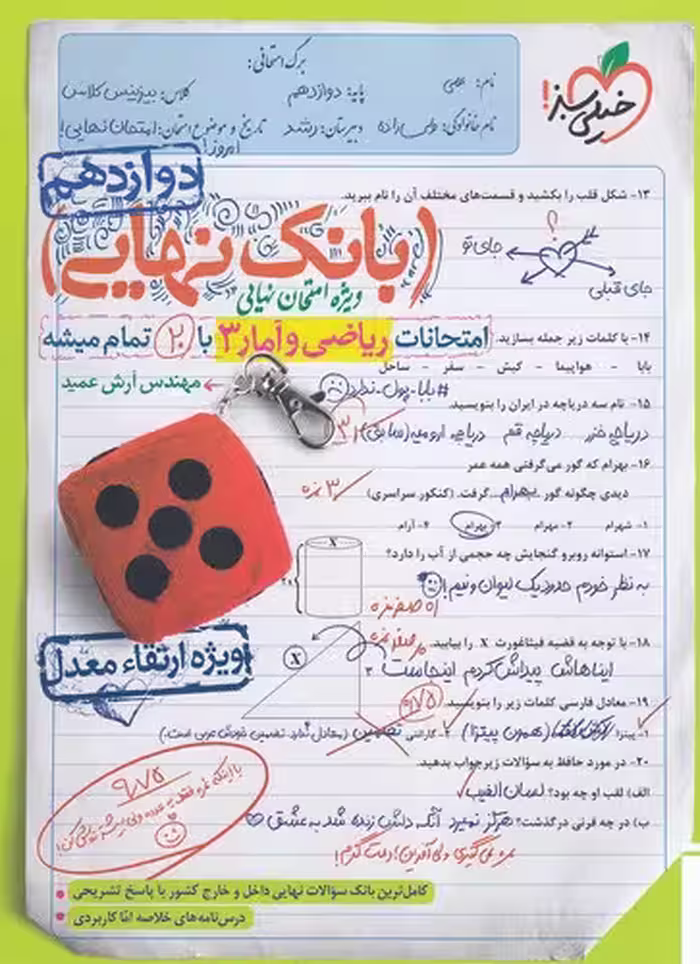 برگ امتحانی:
خیلی سبز
نام:
پایه: دوازدهم
کلاس: بیزینس کلاس
نام خانوادگی:
دبیرستان: رشد
تاریخ و موضوع امتحان: امتحان نهایی!
امروز!
دوازدهم
۱۳- شکل قلب را بکشید و قسمت‌های مختلف آن را نام ببرید.
؟
جای تو
جای قبلی
(بانک نهایی)
ویژه امتحان نهایی
امتحانات ریاضی و آمار ۳ با ۲۰ تمام میشه
مهندس آرش عمید
۱۴- با کلمات زیر جمله بسازید.
بابا - هواپیما - کیش - سفر - ساحل
#بابا-پول-ندارد
۱۵- نام سه دریاچه در ایران را بنویسید.
دریاچه خزر دریاچه قم دریاچه ارومیه (سابق)
۱۶- بهرام که گور می‌گرفتی همه عمر
دیدی چگونه گور بهرام گرفت. (کنکور سراسری)
۳ نمره
۱- شهرام ۲- مهرام ۳- بهرام ۴- آرام
۱۷- استوانه روبرو گنجایش چه حجمی از آب را دارد؟
x
به نظر خودم حدود یک لیوان و نیم!
صفر نمره
۱۸- با توجه به قضیه فیثاغورث x را بیابید.
صفر نمره
x
ایناهاش پیداش کردم اینجاست
۳
ویژه ارتقاء معدل
۱۹- معادل فارسی کلمات زیر را بنویسید.
۹/۷۵
۱- پیتزا (همون پیتزا) ۲- گارانتی تضمین (معادل ندارد. تضمین خودش عربی است.)
۲۰- در مورد حافظ به سؤالات زیر جواب بدهید.
الف) لقب او چه بود؟ لسان الغیب
ب) در چه قرنی درگذشت؟ هرگز نمیرد آنکه دلش زنده شد به عشق
۹/۷۵
نمره نمی‌گیری ولی آفرین! دمت گرم!
کامل‌ترین بانک سؤالات نهایی داخل و خارج کشور با پاسخ تشریحی
درس‌نامه‌های خلاصه امّا کاربردی